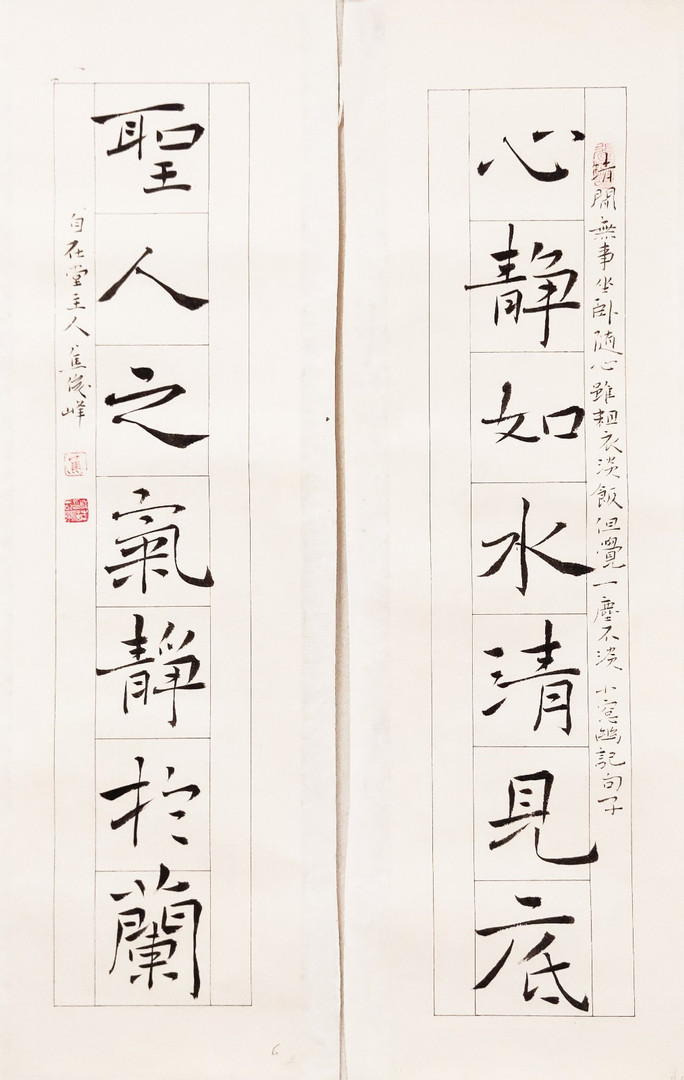 清閒無事坐卧隨心雖粗衣淡飯但覺一塵不染 小窗幽記句子
心静如水清見底
聖人之氣靜於蘭
自在堂主人焦俊峰